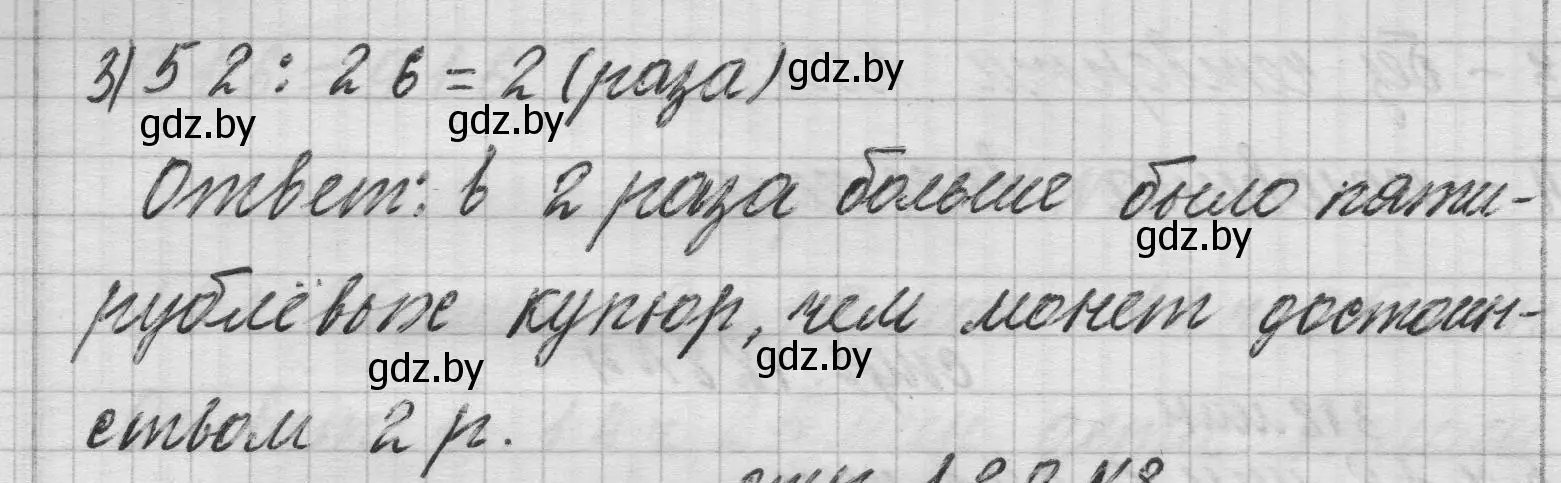 3) 52 : 26 = 2 (раза) gdz.by
gdz.by gdz.by
Ответ: в 2 раза больше было пяти-
gdz.by
рублёвых купюр, чем монет достоин-
gdz.by gdz.by
ством 2 р.